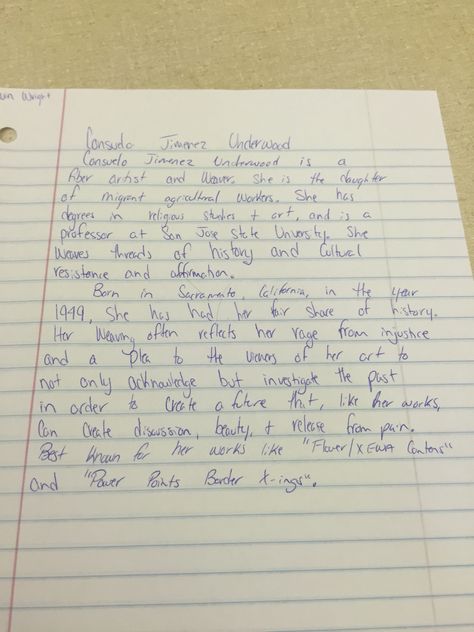 Wright
Consuelo Jimenez Underwood
Consuelo Jimenez Underwood is a
fiber artist and Weaver. She is the daughter
of migrant agricultural workers. She has
degrees in religious studies + art, and is a
professor at San Jose State University. She
Weaves threads of history and Cultural
resistence and affirmation.
Born in Sacramento, California, in the year
1949, She has had her fair share of history.
Her Weaving often reflects her rage from injustice
and a Plea to the viewers of her art to
not only acknowledge but investigate the past
in order to Create a future that, like her works,
Can Create discussion, beauty, + release from pain.
Best known for her works like "Flower/XEWA
and "Power Points Border X-ings".